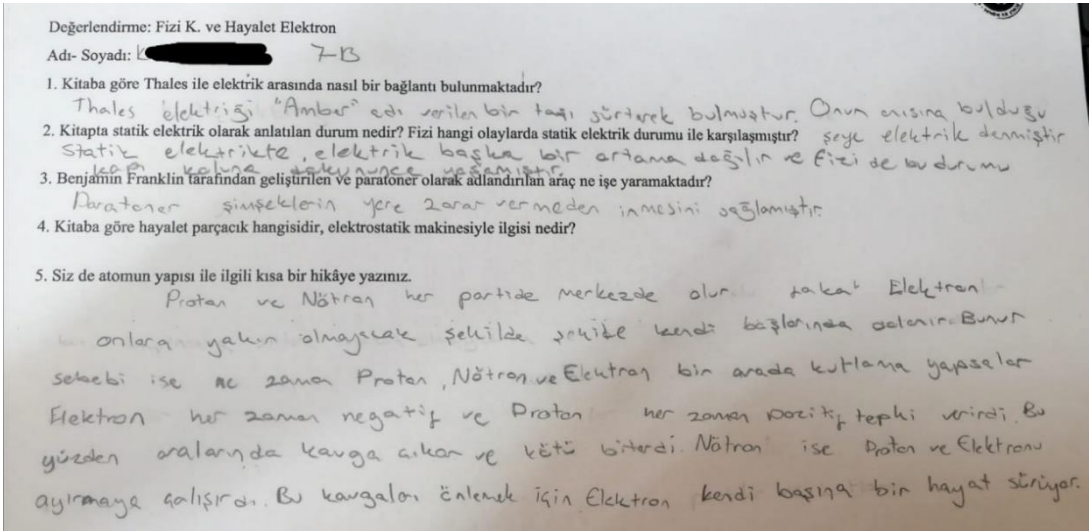 Değerlendirme: Fizi K. ve Hayalet Elektron
Adı- Soyadı: 7-B
1. Kitaba göre Thales ile elektrik arasında nasıl bir bağlantı bulunmaktadır?
Thales elektriği "Amber" adı verilen bir taşı sürterek bulmuştur. Onun anısına bulduğu
2. Kitapta statik elektrik olarak anlatılan durum nedir? Fizi hangi olaylarda statik elektrik durumu ile karşılaşmıştır? şeye elektrik denmiştir
Statik elektrikte, elektrik başka bir ortama dağılır ve Fizi de bu durumu
kapı koluna dokununca yaşamıştır.
3. Benjamin Franklin tarafından geliştirilen ve paratoner olarak adlandırılan araç ne işe yaramaktadır?
Paratoner şimşeklerin yere zarar vermeden inmesini sağlamıştır.
4. Kitaba göre hayalet parçacık hangisidir, elektrostatik makinesiyle ilgisi nedir?
5. Siz de atomun yapısı ile ilgili kısa bir hikâye yazınız.
Proton ve Nötron her partide merkezde olur. fakat Elektron
onlara yakın olmayacak şekilde kendi başlarında Bunun
sebebi ise ne zaman Proton, Nötron ve Elektron bir arada kutlama yapsalar
Elektron her zaman negatif ve Proton her zaman pozitif tepki verirdi. Bu
yüzden aralarında kavga çıkar ve kötü biterdi. Nötron ise Proton ve Elektronu
ayırmaya çalışırdı. Bu kavgaları önlemek için Elektron kendi başına bir hayat sürüyor.